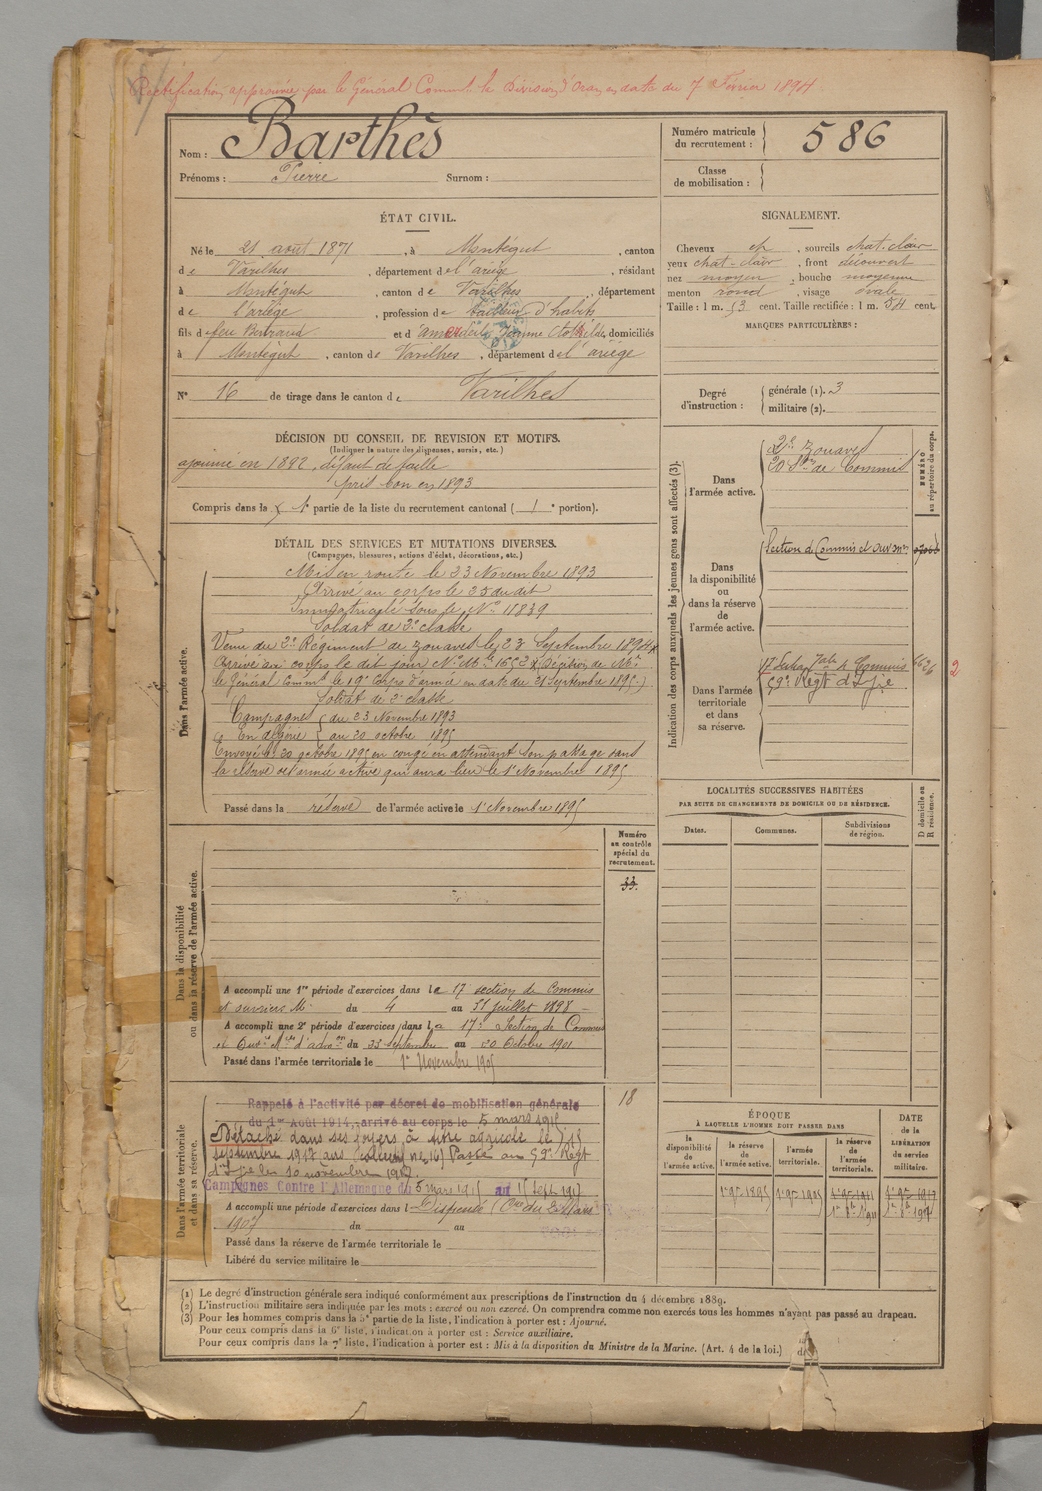 Rectification approuvée par le Général Command. la Division d'Oran en date du 7 Février 1894
Nom : Barthès
Prénoms : Pierre Surnom :
Numéro matricule du recrutement : 586
Classe de mobilisation :
ÉTAT CIVIL.
Né le 21 août 1871, à Montégut, canton
de Varilhes, département de l'ariège, résidant
à Montégut, canton de Varilhes, département
de l'ariège, profession de tailleur d'habits
fils de feu Bertrand et d' Jeanne Clothilde, domiciliés
à Montégut, canton de Varilhes, département de l'ariège
N° 16 de tirage dans le canton de Varilhes
SIGNALEMENT.
Cheveux ch, sourcils chat. clair
yeux chat-clair, front découvert
nez moyen, bouche moyenne
menton rond, visage ovale
Taille : 1 m. 53 cent. Taille rectifiée : 1 m. 54 cent.
MARQUES PARTICULIÈRES :
Degré d'instruction : générale (1). 3
militaire (2).
DÉCISION DU CONSEIL DE REVISION ET MOTIFS.
(Indiquer la nature des dispenses, sursis, etc.)
ajourné en 1892, défaut de taille
pris bon en 1893
Compris dans la 1e partie de la liste du recrutement cantonal ( 1 e portion).
DÉTAIL DES SERVICES ET MUTATIONS DIVERSES.
(Campagnes, blessures, actions d'éclat, décorations, etc.)
Dans l'armée active.
Mis en route le 23 Novembre 1893
Arrivé au corps le 25 du dit
Immatriculé sous le No 11839
Soldat de 2e classe
Venu du 2e Régiment de zouaves le 23 Septembre 1894
Arrivé au corps le dit jour No Mle 1652 (Décision de Mr
le Général Commt le 19e Corps d'armée en date du 21 Septembre 1895)
Soldat de 2e classe
Campagnes du 23 Novembre 1893
En algérie au 20 octobre 1895
Envoyé le 20 octobre 1895 en congé en attendant son passage dans
la réserve de l'armée active qui aura lieu le 1er Novembre 1895
Passé dans la réserve de l'armée active le 1er Novembre 1895
Indication des corps auxquels les jeunes gens sont affectés (3).
NUMÉRO au répertoire du corps.
Dans l'armée active.
2e zouaves
20e Son de Commis
Dans la disponibilité ou dans la réserve de l'armée active.
Section de Commis et ouv mre
Dans l'armée territoriale et dans sa réserve.
17 Section Tale de Commis 6626
59e Régt d'Ife
2
LOCALITÉS SUCCESSIVES HABITÉES
PAR SUITE DE CHANGEMENTS DE DOMICILE OU DE RÉSIDENCE.
Dates. Communes. Subdivisions de région. D domicile ou R résidence.
Dans la disponibilité ou dans la réserve de l'armée active.
Numéro au contrôle spécial du recrutement.
33.
A accompli une 1re période d'exercices dans la 17 section de Commis
et ouvriers M. du 4 au 31 juillet 1898
A accompli une 2e période d'exercices dans la 17e Section de Commis
et Ouvrs Mres d'admon du 23 septembre au 20 Octobre 1901
Passé dans l'armée territoriale le 1er Novembre 1905
Dans l'armée territoriale et dans sa réserve.
18
Rappelé à l'activité par décret de mobilisation générale
du 1er Août 1914, arrivé au corps le 5 mars 1915
Détaché dans ses foyers à titre agricole le 15
septembre 1917 Passé au 59e Régt
d'Ife le 10 novembre 1917.
Campagnes Contre l'Allemagne du 5 mars 1915 au 15 Sept 1917
A accompli une période d'exercices dans l Dispensé
1907 du au
Passé dans la réserve de l'armée territoriale le
Libéré du service militaire le
ÉPOQUE
À LAQUELLE L'HOMME DOIT PASSER DANS
la disponibilité de l'armée active. la réserve de l'armée active. l'armée territoriale. la réserve de l'armée territoriale.
DATE de la LIBÉRATION du service militaire.
1er 9bre 1895 1er 9bre 1905 1er 9bre 1911 1er 9bre 1917
(1) Le degré d'instruction générale sera indiqué conformément aux prescriptions de l'instruction du 4 décembre 1889.
(2) L'instruction militaire sera indiquée par les mots : exercé ou non exercé. On comprendra comme non exercés tous les hommes n'ayant pas passé au drapeau.
(3) Pour les hommes compris dans la 5e partie de la liste, l'indication à porter est : Ajourné.
Pour ceux compris dans la 6e liste, l'indication à porter est : Service auxiliaire.
Pour ceux compris dans la 7e liste, l'indication à porter est : Mis à la disposition du Ministre de la Marine. (Art. 4 de la loi.)